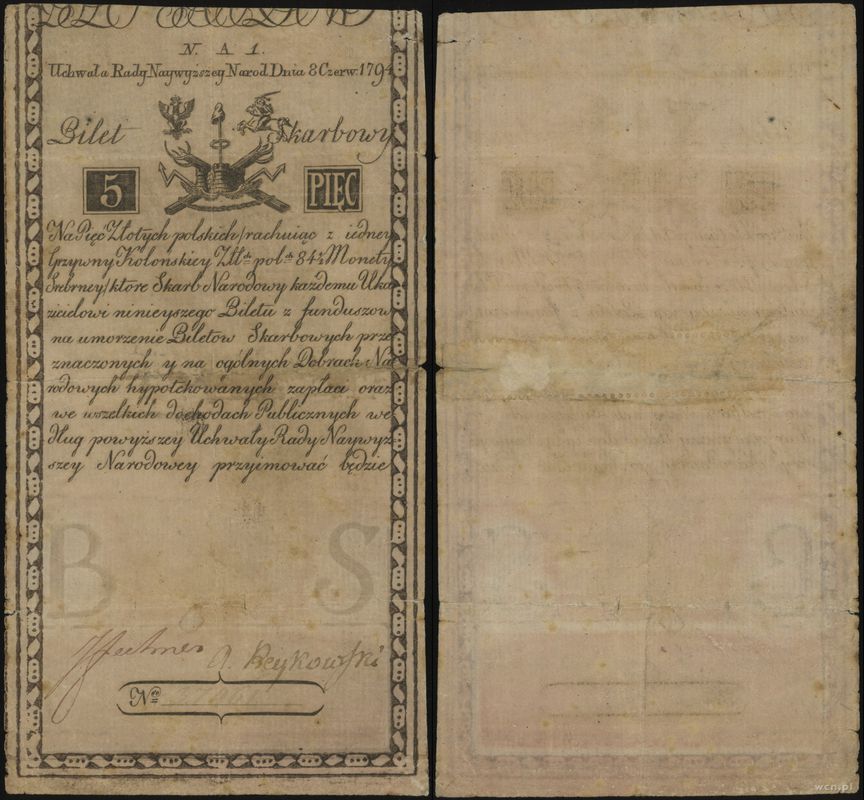 N. A 1.
Uchwała Rady Naywyższey Narod. Dnia 8 Czerw. 1794
Bilet Skarbowy
5 PIĘĆ
Na Pięć Złotych polskich /rachuiąc z iedney
Grzywny Kolońskiey Złł. pol. 84½ Monety
Srebrney/ które Skarb Narodowy każdemu Uka
zicielowi ninieyszego Biletu z funduszow
na umorzenie Biletów Skarbowych prze
znaczonych y na ogólnych Dobrach Na
rodowych hypotekowanych zapłaci oraz
we wszelkich dochodach Publicznych we
dług powyższey Uchwały Rady Naywyż
szey Narodowey przyimować będzie
B S
A. Reykowski
Nro
wcn.pl